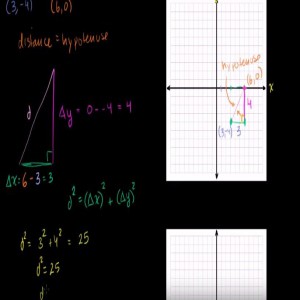 (3,-4) (6,0)
distance = hypotenuse
d
Δy = 0 - -4 = 4
Δx = 6 - 3 = 3
d² = (Δx)² + (Δy)²
d² = 3² + 4² = 25
d² = 25
hypotenuse
(6,0)
x
4
(3,-4) 3